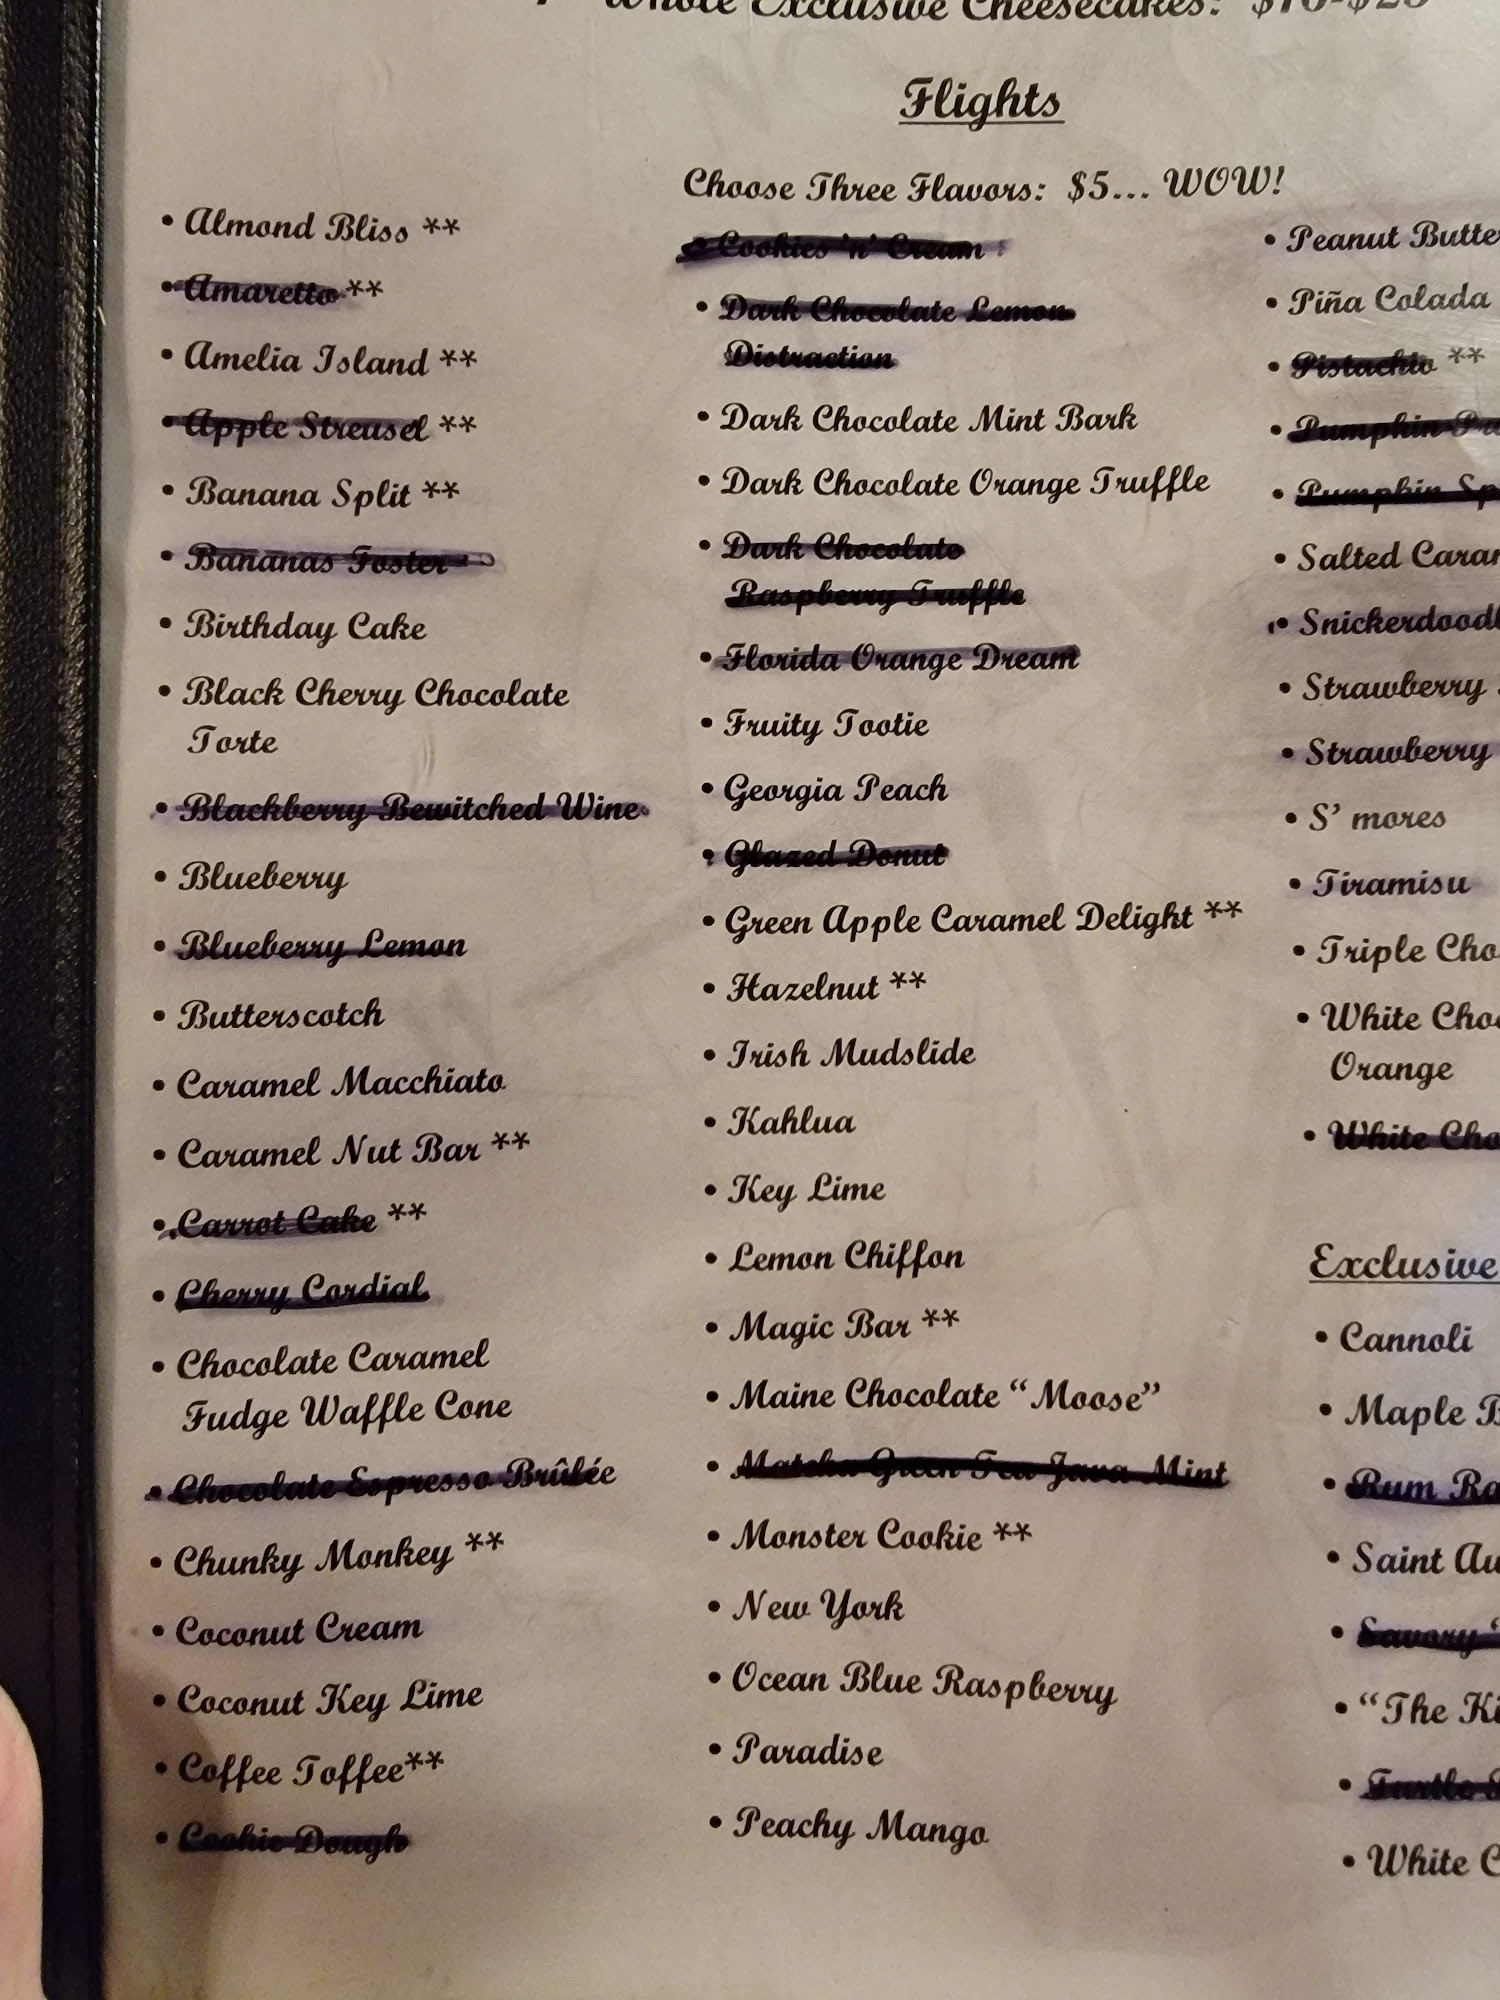 Whole Exclusive Cheesecakes:
Flights
Choose Three Flavors: $5... WOW!
• Almond Bliss **
• Amaretto **
• Amelia Island **
• Apple Streusel **
• Banana Split **
• Bananas Foster
• Birthday Cake
• Black Cherry Chocolate
Torte
• Blackberry Bewitched Wine
• Blueberry
• Blueberry Lemon
• Butterscotch
• Caramel Macchiato
• Caramel Nut Bar **
• Carrot Cake **
• Cherry Cordial
• Chocolate Caramel
Fudge Waffle Cone
• Chocolate Espresso Brûlée
• Chunky Monkey **
• Coconut Cream
• Coconut Key Lime
• Coffee Toffee**
• Cookie Dough
• Cookies 'n' Cream
• Dark Chocolate Lemon
Distraction
• Dark Chocolate Mint Bark
• Dark Chocolate Orange Truffle
• Dark Chocolate
Raspberry Truffle
• Florida Orange Dream
• Fruity Tootie
• Georgia Peach
• Glazed Donut
• Green Apple Caramel Delight **
• Hazelnut **
• Irish Mudslide
• Kahlua
• Key Lime
• Lemon Chiffon
• Magic Bar **
• Maine Chocolate “Moose”
• Matcha Green Tea Java Mint
• Monster Cookie **
• New York
• Ocean Blue Raspberry
• Paradise
• Peachy Mango
• Peanut
• Piña Colada
• Pistachio **
• Pumpkin
• Pumpkin
• Salted
•
• Strawberry
• Strawberry
• S’ mores
• Tiramisu
• Triple
• White
Orange
• White
Exclusive
• Cannoli
• Maple
• Rum
• Saint
• Savory
• “The
• Turtle
• White